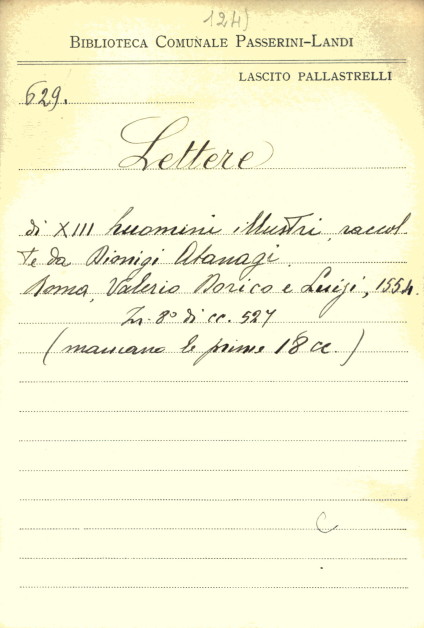 124)
BIBLIOTECA COMUNALE PASSERINI-LANDI
LASCITO PALLASTRELLI
629.
Lettere
di XIII huomini illustri, raccol-
te da Dionigi Atanagi.
Roma, Valerio Dorico e Luigi, 1554.
In. 8° di cc. 527
(mancano le prime 18 cc.)
C